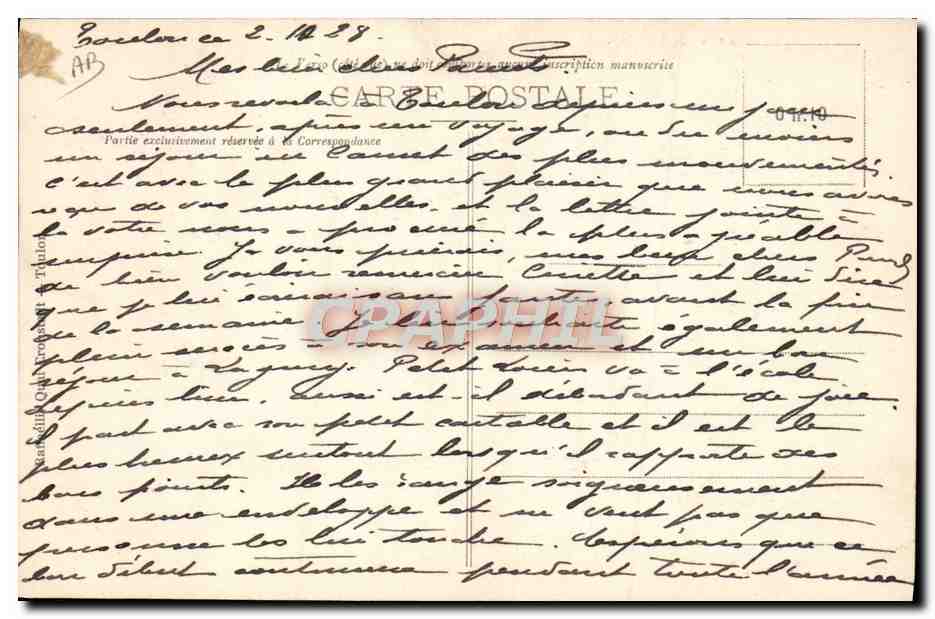 Toulon ce 2.10.28
AB
Mes bien chers Parents.
Verso (côté vue) ne doit comporter aucune inscription manuscrite
CARTE POSTALE
Nous revoilà à Toulon depuis un jour
0 fr.10
seulement, après un voyage, ou du moins
Partie exclusivement réservée à la Correspondance
un séjour au Cannet des plus mouvementés.
C'est avec le plus grand plaisir que nous avons
reçu de vos nouvelles, et la lettre jointe à
la vôtre nous a procuré la plus agréable
surprise. Je vous prierais, mes bien chers
de bien vouloir remercier et lui dire
que je lui écrirai sans faute avant la fin
de la semaine. Je lui souhaite également
plein succès à son examen et un bon
séjour à Lagny. Petit Louis va à l'école
depuis hier, aussi est-il débordant de joie.
il part avec son petit cartable et il est le
plus heureux surtout lorsqu'il rapporte des
bons points. Il les range soigneusement
dans une enveloppe et ne veut pas que
personne les lui touche. Espérons que ce
bon début continuera pendant toute l'année
Quai Cronstadt Toulon
CPAPHIL